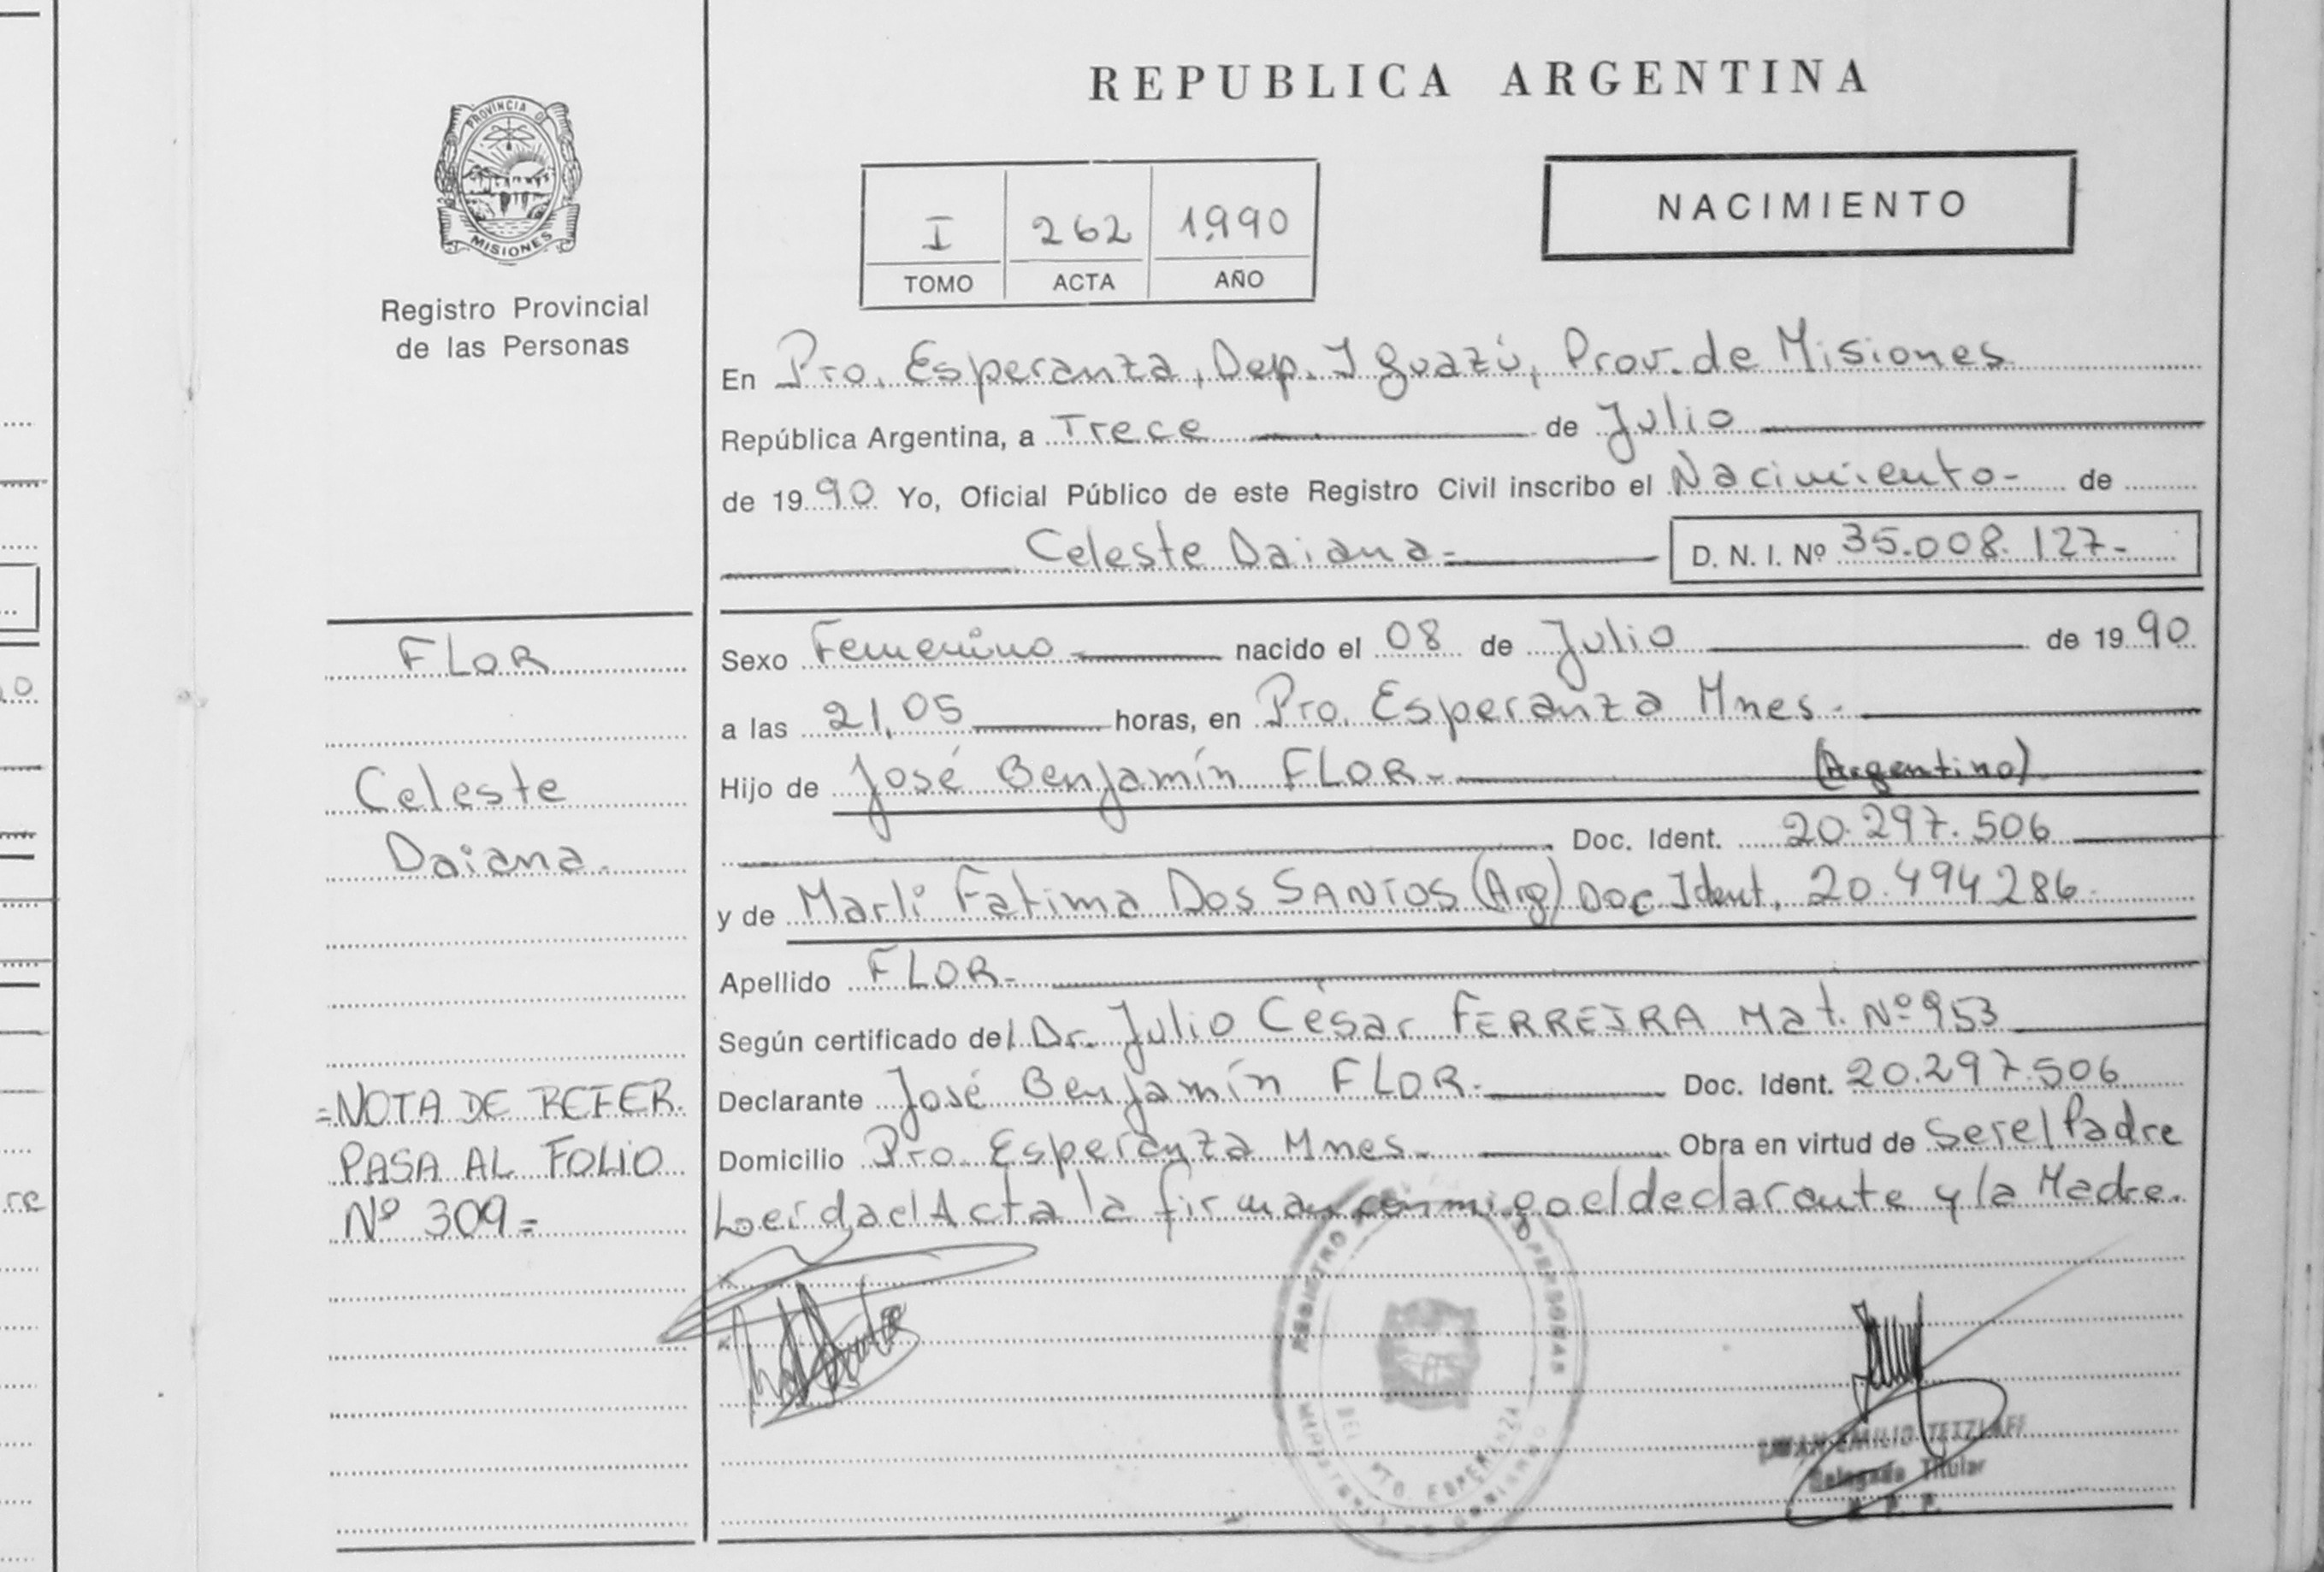 REPUBLICA ARGENTINA
PROVINCIA DE
MISIONES
Registro Provincial
de las Personas
I 262 1990
TOMO ACTA AÑO
NACIMIENTO
En Pto. Esperanza, Dep. Iguazú, Prov. de Misiones
República Argentina, a Trece de Julio
de 1990 Yo, Oficial Público de este Registro Civil inscribo el Nacimiento- de
Celeste Daiana- D. N. I. Nº 35.008.127-
FLOR
Celeste
Daiana.
=NOTA DE REFER.
PASA AL FOLIO
Nº 309=
Sexo Femenino- nacido el 08 de Julio de 1990
a las 21,05 horas, en Pto. Esperanza Mnes.
Hijo de José Benjamín FLOR- (Argentino)
Doc. Ident. 20.297.506
y de Marli Fatima Dos SANTOS (Arg) Doc Ident. 20.494286.
Apellido FLOR-
Según certificado del Dr. Julio César FERREIRA Mat. Nº 953
Declarante José Benjamín FLOR- Doc. Ident. 20.297.506
Domicilio Pto. Esperanza Mnes. Obra en virtud de Ser el Padre
Leída el Acta la firman conmigo el declarante y la Madre.
REGISTRO PERSONAS
DEL PTO ESPERANZA
EMILIO TETZLAFF
Delegado Titular